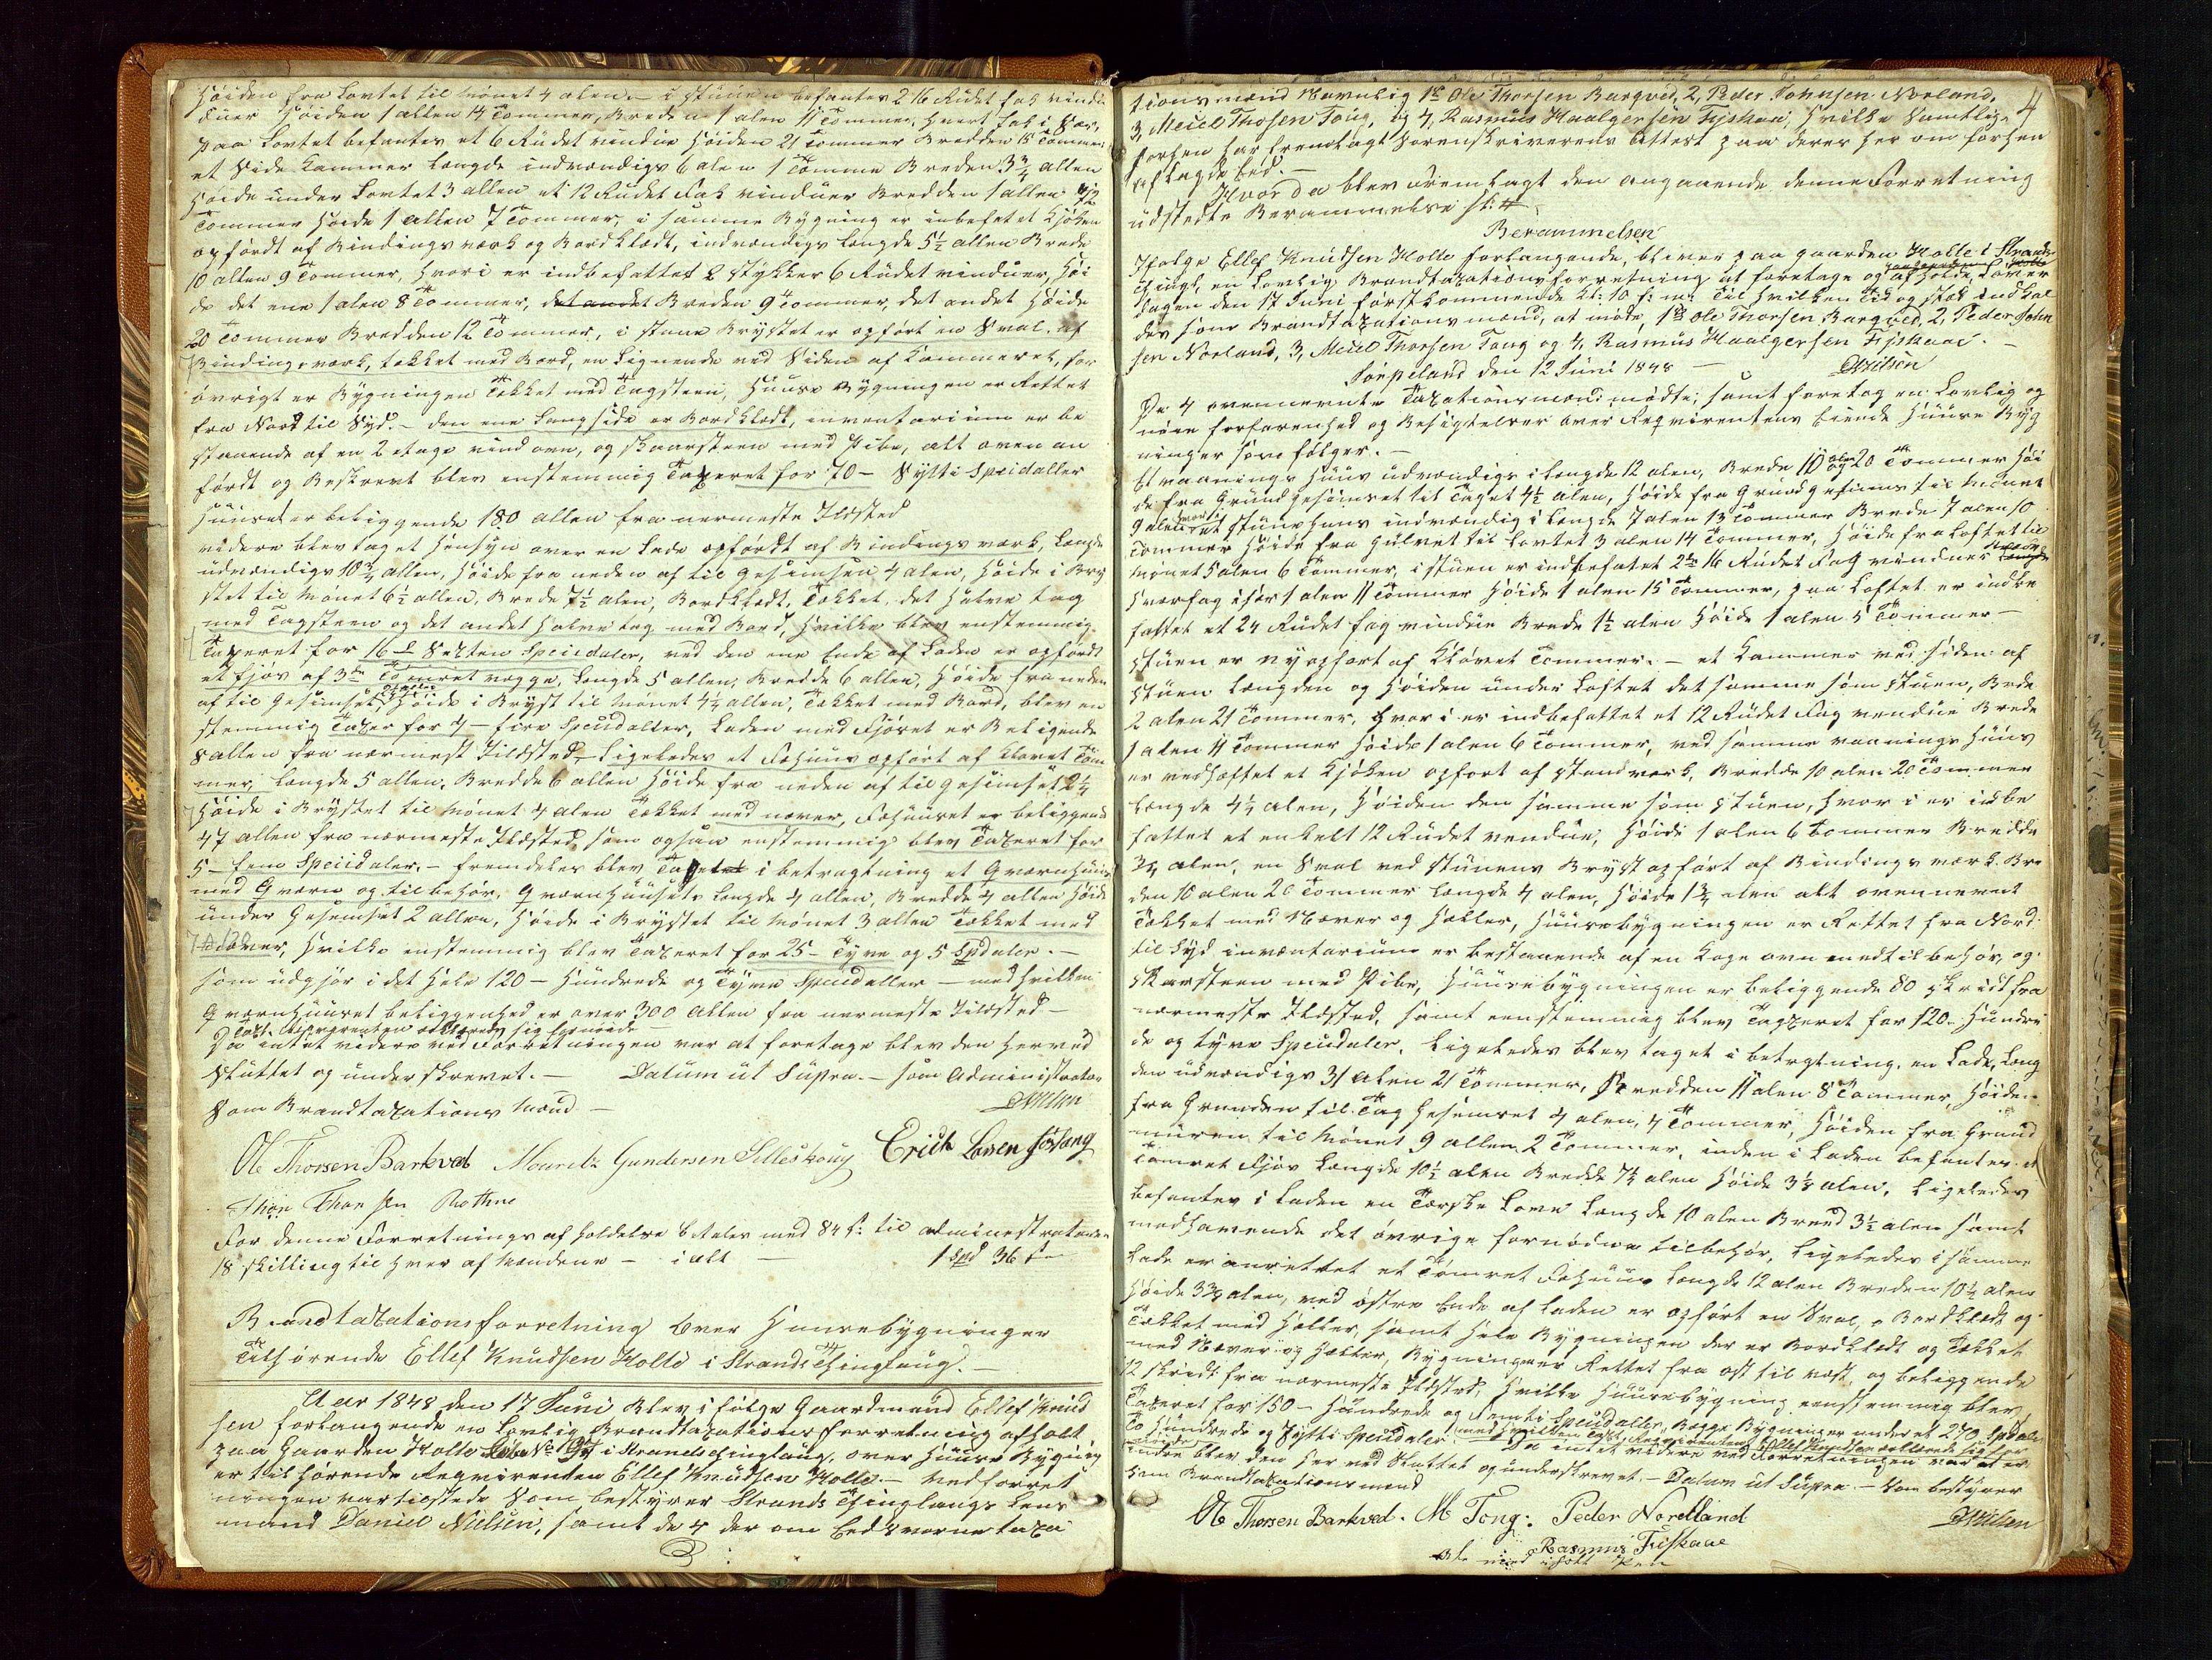 Høiden fra Lovtet til Mønet 4 alen – i stuuen befantes 2 16 Rudet fak vindu
duer Høiden 1 allen 14 Tommer, Breden 1 alen 11 Tommer, hvert fak i Sær,
paa Lovtet befantes et 6 Rudet vindue Høiden 21 Tommer Bredden 15 Tommer
et Side Kammer Længde indvændigs 6 alen 1 Tomme Breden 3 3/4 allen
Høide under Lovtet 3 allen et 12 Rudet Fak vinduer Bredden 1 allen
Tommer Høide 1 allen 7 Tommer, i samme Bygning er inbefatet Kjøken
opførdt af Bindingsværk og Bordklædt, indvændigs Længde 5½ allen Brede
10 allen 9 Tommer, hvori er indbefattet 2 stykker 6 Rudet vinduer, Høi
de det ene 1 alen 8 Tommer, det andet Breden 9 Tommer, det andet Høide
20 Tommer Bredden 12 Tommer, i stuue Brystet er opført en Sval af
Bindingsværk, tækket med Bord, en lignende ved Siden af Kammeret, for
øvrigt er Bygningen Tækket med Tagsteen, Huuse Bygningen er Rettet
fra Nord til Syd. – den ene Langside er Bordklædt, inventarium er be
staaende af en 2 etage vind ovn, og skaarsteen med Pibe, alt oven an
førdt og Beskrevt blev enstemmig Taxeret for 70 – Sytti Speidaller
Huuset er beliggende 180 allen fra nermeste Ildsted
videre blev taget Hensyn over en Lade opførdt af Bindingsværk, Længde
udvændigs 10 3/4 allen, Høide fra neden af til Gesimsen 4 alen, Høide i Bry
stet til Mønet 6½ allen, Brede 7½ alen, Bordklædt, Tækket det halve tag
med Tagsteen og det andet halve tag med Bord, hvilke blev enstemmig
Taxeret for 16 – Sexten Speidaler, ved den ene Ende af Laden er opførdt
et Fjøs af 3de Tømret vægge, Længde 5 allen, Bredde 6 allen, Høide fra neden
af til Gesimset Høide i Bryst til Mønet 4½ allen, Tækket med Bord, blev en
stemmig Taxer for 4 – fire Speidaller, Laden med Fjøset er Beligende
8 allen fra nærmest Ildsted, Ligeledes et Fæhuus opført af kløvet Tøm
mer, Længde 5 allen, Bredde 6 allen Høide fra neden af til Gesimset 2¼
Høide i Brystet til Mønet 4 alen Tækket med næver, Fæhuuset er beliggende
47 allen fra nærmeste Ildsted som ogsaa enstemmig blev Taxeret for
5 – fem Speiidaler, – fremdeles blev Taget i betragtning et Qværnhuus
med Qværn og tilbehør, Qværnhuusets Længde 4 allen, Bredde 4 allen Høide
under Gesemset 2 allen, Høide i Brystet til Mønet 3 allen Tækket med
Næver, hvilke enstemmig blev Taxeret for 25 – Tyve og 5 Spdaler. –
som udgjør i det hele 120 – Hundrede og Tyve Speidaller – med hvilken
Qværnhuuset beliggenhed er over 300 allen fra nermeste Ildsted –
Taxt Reqvirenten erklærede sig fornøiede
Da intet videre ved Forretningen var at foretage blev den herved
sluttet og underskrevet. – Datum ut Supra. – som Administrator
Som Brandtaxations Mænd – DNilsen
Ole Thorsen Barkved Mouritz Gundersen Lilleskoug Erich Larsen Jørlang
Thor Thorsen Rothne
For denne Forretnings afholdelse betales med 84 s: til administratoren
18 skilling til hver af Mændene – i alt – 1 Spd 36 s –
Brandtaxationsforretning over Huusebygninger
Tilhørende Ellef Knudsen Holte i Strands Thinglaug. –
Aar 1848 den 17 Juni Blev i følge Gaardmand Ellef Knud
sen forlangende en Lovlig Brandtaxationsforretning afholt
paa Gaarden Holte i Strands Thinglaug, over Huuse Bygning
er tilhørende Reqvirenden Ellef Knudsen Holte. – ved forret
ningen var tilstede Som bestyrer Strands Thinglaugs Lens
mand Daniel Nilsen, samt de 4 der om Eedsvorne taxa
4
tionsmænd Navnlig 1st Ole Thorsen Barqved, 2, Peder Johnsen Norland,
3, Meiel Thosen Tong, og 4, Rasmus Haalgersen Fiskaa, hvilke Samtlige
forhen har fremlagt Sorenskriverens Attest paa deres her om forhen
aflagde Eed. –
Hvor da blev Fremlagt den angaaende denne Forretning
udstedte Berammelse
Berammelsen
Ifølge Ellef Knudsen Holte forlangende, bliver paa gaarden Holte i Strands
Thingl. en Lovlig Brandtaxationsforretning at foretage og afholde Løver
dagen den 17 Juni førstkommende Kl: 10 f: m: Til hvilken Tid og sted indkal
des som Brandtaxationsmænd, at møde, 1st Ole Thorsen Barqved, 2, Peder John
sen Norland, 3, Meiel Thorsen Tong og 4, Rasmus Haalgersen Fiskaae. –
Jørpeland den 12 Juni 1848 – DNilsen
De 4 ovennevnte Taxationsmænd mødte; samt foretog en Lovlig og
nøie forfarenhed og Besigtelser over Reqvirentens Eiende Huuse Byg
ninger som følger. –
Et vaanings Huus udvændigs i Længde 12 alen, Brede 10 alen og 20 Tommer Høi
de fra Grundgesimset til Taget 4½ alen, Høide fra Grundgesims til Mønet
9 alen hvori et stuuehuus indvændig i Længde 7 alen 13 Tommer Brede 7 alen 10
Tommer Høide fra Gulvet til Lovtet 3 alen 14 Tommer, Høide fra Loftet til
Mønet 5 alen 6 Tommer, i stuen er indbefatet 2de 16 Rudet Fag vinduer
hverfag i sær 1 alen 11 Tommer Høide 1 alen 15 Tommer, paa Loftet er indbe
fattet et 24 Rudet fag vindue Brede 1½ alen Høide 1 alen 5 Tommer –
stuen er nyopført af Kløvet Tommer. – et Kammer ved siden af
stuen Længden og Høiden under Loftet det samme som stuen, Brede
2 alen 21 Tommer, hvori er indbefattet et 12 Rudet Fag vendue Brede
1 alen 11 Tommer Høide 1 alen 6 Tommer, ved samme vaanings Huus
er vedhæftet et Kjøken opført af standværk, Bredde 10 alen 20 Tommer
Længde 4½ alen, Høiden den samme som stuen, hvor i er indbe
fattet et enkelt 12 Rudet vendue, Høide 1 alen 6 tommer Bredde
3/4 alen, en Sval ved stuuens Bryst opført af Bindingsværk Bre
den 10 alen 20 Tommer Længde 4 alen, Høide 1 3/4 alen alt ovennevnt
Tækket med Næver og Hæller, Huusebygningen er Rettet fra Nord
til Syd inventarium er bestaaende af en Koge ovn med tilbehør, og
skarsteen med Pibe, Huusebygningen er beliggende 80 skridt fra
nærmeste Ildsted, samt eenstemmig blev Tagxeret for 120 – Hundre
de og tyve Speidaler. Ligeledes blev taget i betragtning, en Lade, Læng
den udvændigs 31 alen 21 Tommer, Bredden 11 alen 8 Tommer, Høiden
fra Grunden til Tag Gesimset 4 alen, 4 Tommer, Høiden fra Grund
muren til Mønet 9 allen 2 Tommer, inden i Laden befantes et
Tømret Fjøs Længde 10½ alen Bredde 7½ alen Høide 3½ alen, Ligeledes
befantes i Laden en Tærske Love Længde 10 alen Breed 3½ alen samt
medhavende det øvrige fornødne tilbehør, Ligeledes i samme
Lade er anrettet et Tømret Fæhuus Længde 12 alen Breden 10½ alen
Høide 3 3/4 alen, ved østre Ende af Laden er opført en Sval, Bordklædt og
Tækket med Hæller, samt hele Bygningen der er Bordklædt og Tækket
med Næver og Hæller, Bygningen er Rettet fra øst til væst, og beliggende
12 skridt fra nærmeste Ildsted, hvilke Huusebygning eenstemmig blev
Taxeret for 150 – Hundrede og Femti Speidaller, Begge Bygninger under et 270 Spdaler
To Hundrede og Sytti Speidaler. med hvilken Taxt Reqvirenten Ellef Knudsen erklærede sig for
Da intet videre ved Forretningen var at er
indre blev den her ved Sluttet og underskrevet. – Datum ut Supra. – som bestyrer
som Brandtaxationsmænd
Ole Thorsen Barkved. M Tong: Peder Nordland DNilsen
Rasmus Fiskaae
med iholt Pen